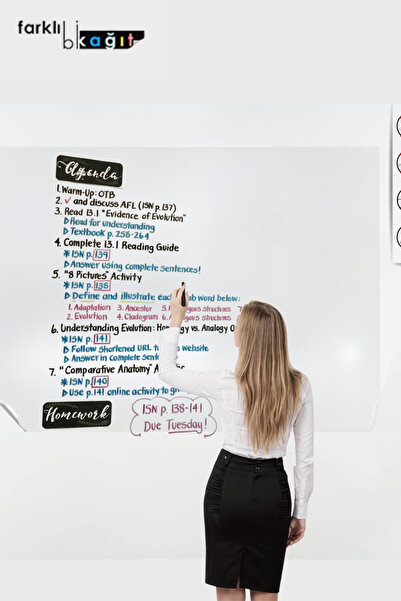 farklı bi
kağıt
Agenda
1. Warm-Up: OTB
2. ✓ and discuss AFL (ISN p.137)
3. Read 13.1 "Evidence of Evolution"
▷ Read for understanding
▷ Textbook p. 258-264
4. Complete 13.1 Reading Guide
* ISN p. 139
▷ Answer using complete sentences!
5. "8 Pictures" Activity
* ISN p. 138
▷ Define and illustrate each vocab word below:
1. Adaptation 3. Ancestor 5. structures 7.
2. Evolution 4. Cladogram 6. structures
6. Understanding Evolution: vs. Analogy
* ISN p. 141
▷ Follow shortened URL website
▷ Answer in complete
7. "Comparative Anatomy"
* ISN p. 140
▷ Use p. 141 online activity to
Homework
ISN p. 138-141
Due Tuesday!